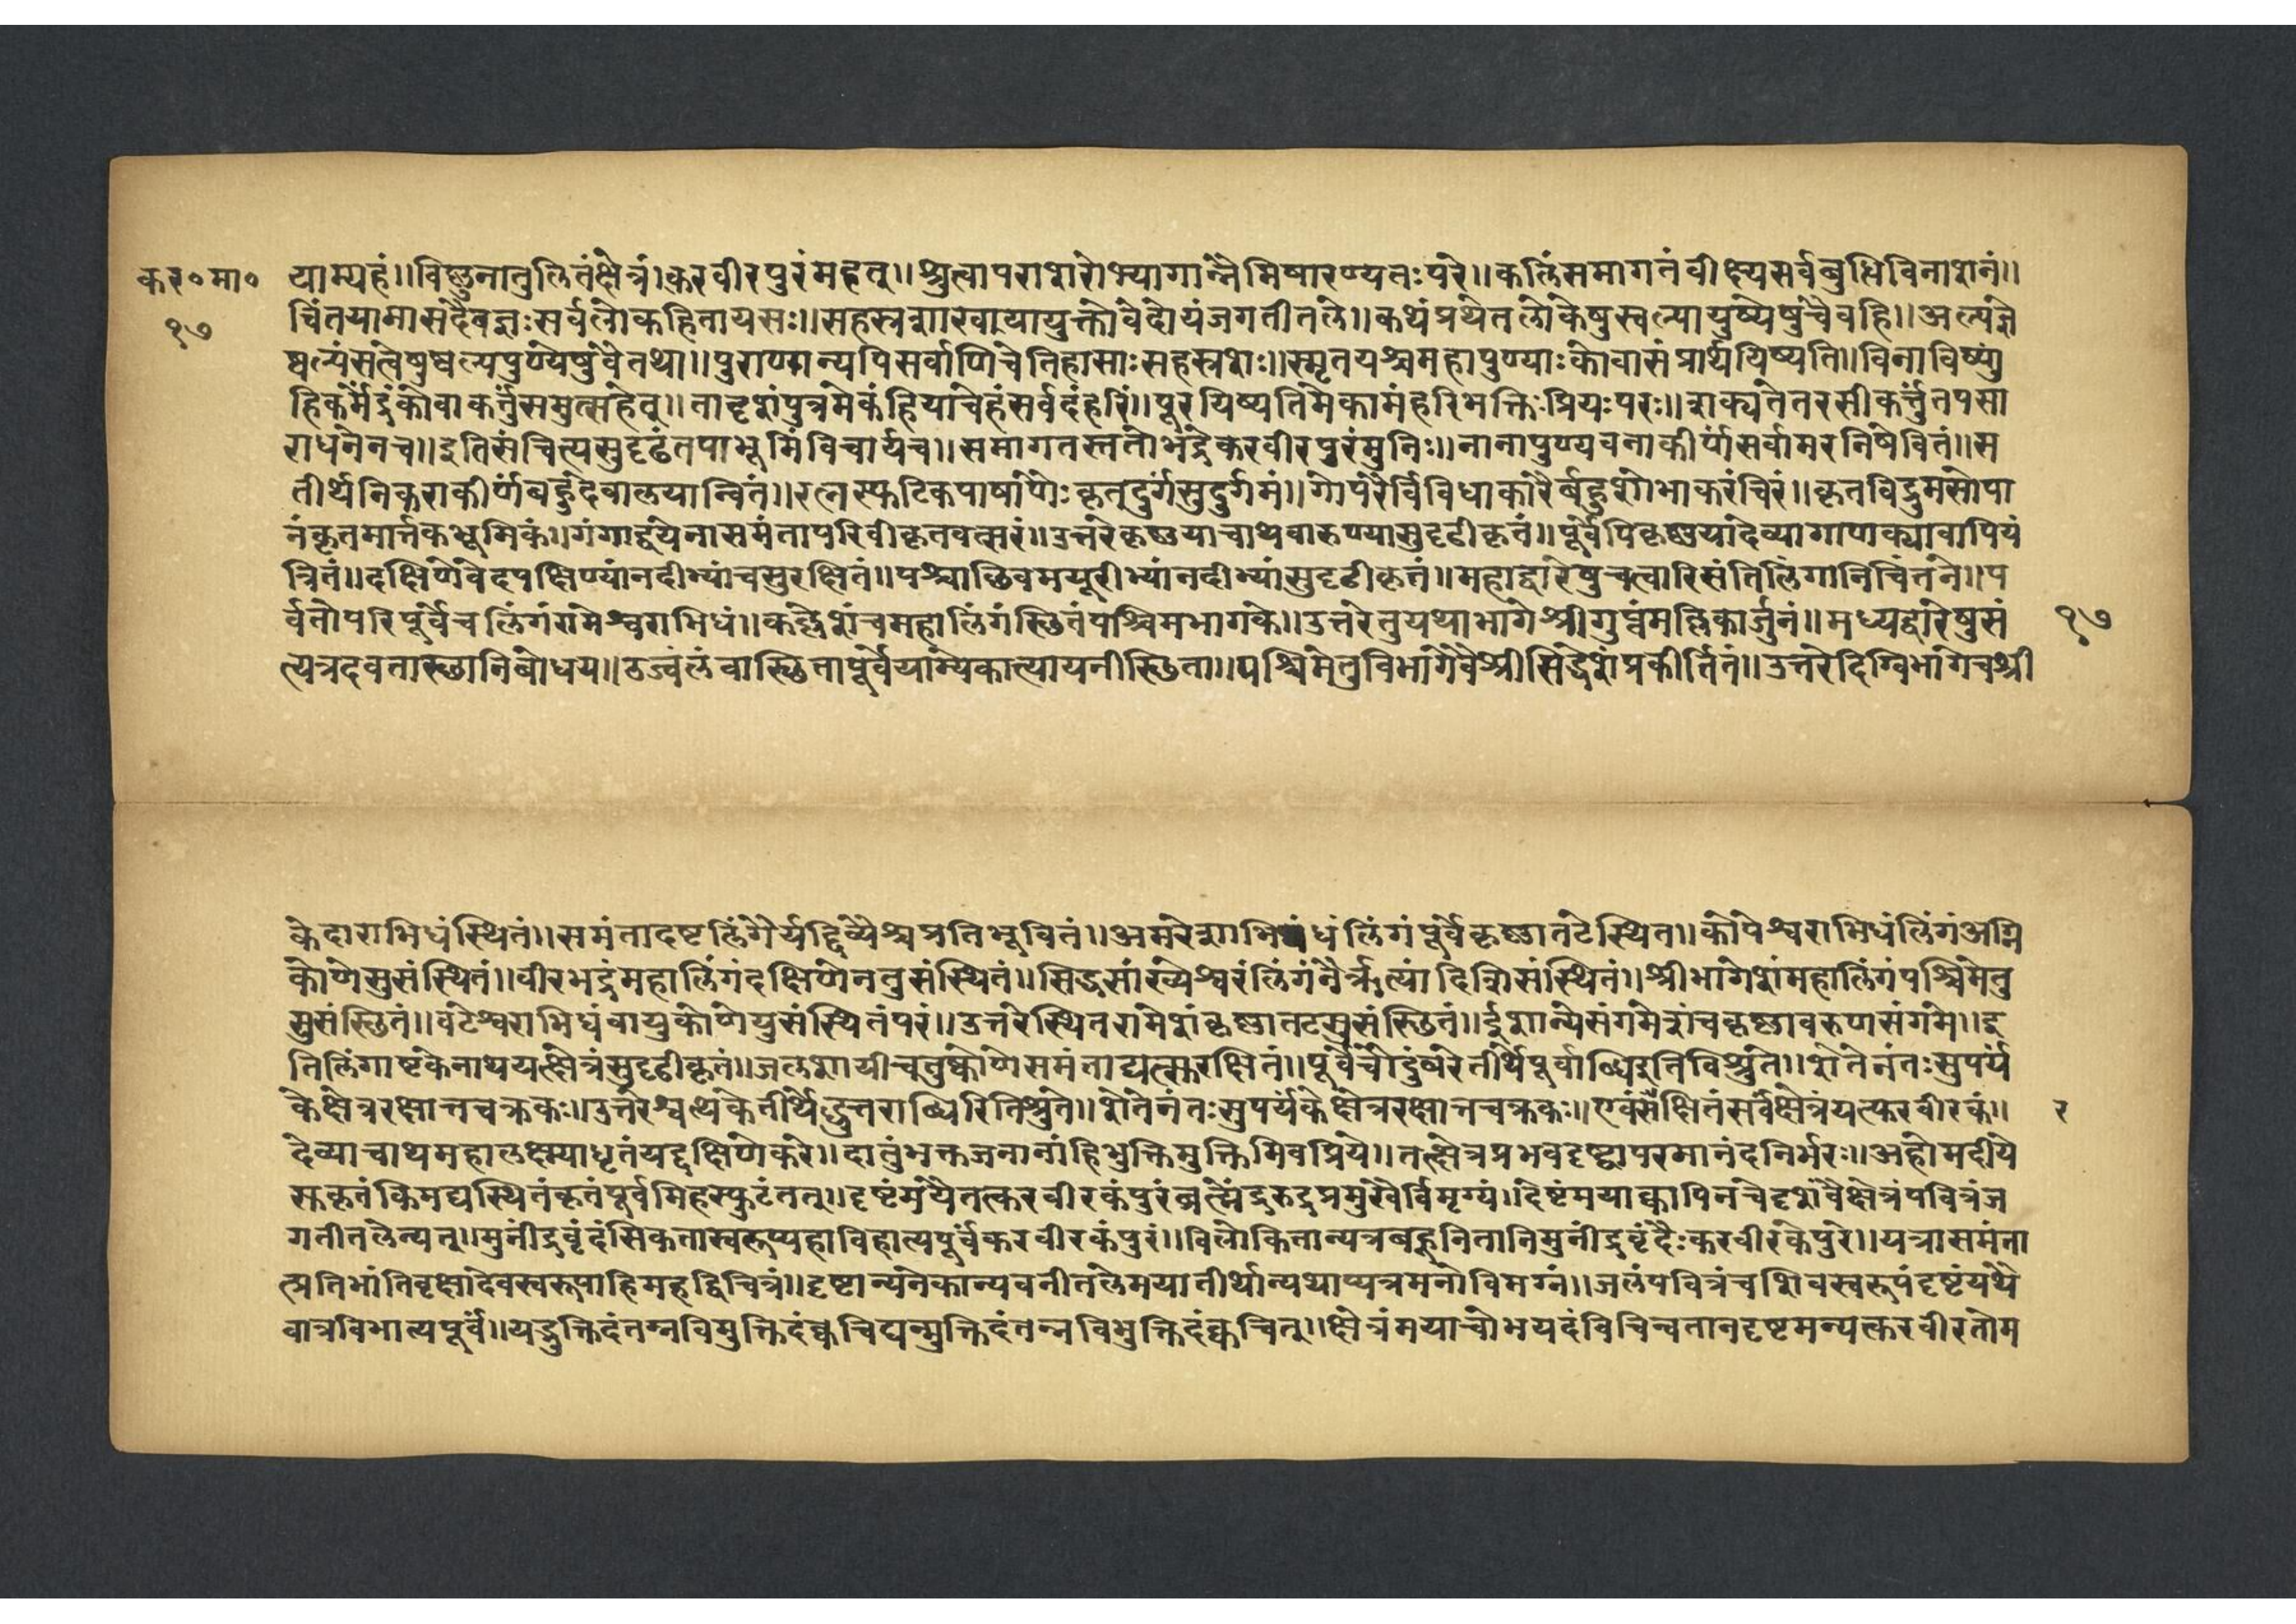 कर०मा० याम्यहं॥विष्णुनातुलितंक्षेत्रं।करवीरपुरंमहत्॥श्रुत्वापराशरोभ्यागान्नैमिषारण्यतःपरे॥कलिंसमागतंवीक्ष्यसर्वबुधिविनाशनं॥
१७ चिंतयामासदैवज्ञःसर्वलोकहितायसः॥सहस्रशाखायायुक्तोवेदोयंजगतीतले॥कथंप्रथेतलोकेषुस्वल्पायुष्येषुचैवहि॥अल्पप्रज्ञे
ष्वल्पसत्वेषुष्वल्पपुण्येषुवैतथा॥पुराणान्यपिसर्वाणिचेतिहासाःसहस्रशः॥स्मृतयश्चमहापुण्याःकोवासंप्रार्थयिष्यति॥विनाविष्णुं
हिकर्मेद्रंकोवाकर्त्तुंसमुत्सहेत्॥तादृशंपुत्रमेकंहियाचेहंसर्वदंहरिं॥पूरयिष्यतिमेकामंहरिभक्तिःप्रियःपरः॥शक्यतेतरसीकर्त्तुंतपसा
राधनेनच॥इतिसंचिंत्यसुदृढंतपाभूमिंविचार्यच॥समागतस्ततोभद्रेकरवीरपुरंमुनिः॥नानापुण्यवनाकीर्णंसर्वामरनिषेवितं॥स
तीर्थनिकराकीर्णंबहुदेवालयान्वितं॥रत्नस्फटिकपाषाणैःकृतदुर्गसुदुर्गमं॥गोपुरैर्विविधाकारैर्बहुशोभाकरंचिरं॥कृतविद्रुमसोपा
नंकृतमार्त्तकभूमिकं॥गंगाद्वयेनासमंतापरिवीकृतवत्सरं॥उत्तरेकृष्णयाचाथवारुण्यासुदृढीकृतं॥पूर्वेपिकृष्णयादेव्यागापाक्यावापियं
त्रितं॥दक्षिणेवेदपक्षिण्यांनदीभ्यांचसुरक्षितं॥पश्चाछिवमयूरीभ्यांनदीभ्यांसुदृढीकृतं॥महाद्वारेषुचत्वारिसंतिलिंगानिचिंतने॥प
र्वतोपरिपूर्वेचलिंगंरामेश्वराभिधं॥कह्लेशंचमहालिंगंस्छितंपश्चिमभागके॥उत्तरेतुयथाभागेश्रीगुप्तंमल्लिकार्जुनं॥मध्यद्वारेषुसं १७
त्येत्रदेवतास्छानिबोधय॥ठज्वलंवास्छितापूर्वेयाम्येकात्यायनीस्छिता॥पश्चिमेतुविभागेवैश्रीसिद्धेशंप्रकीर्तितं॥उत्तरेदिग्विभागेचश्री
केदाराभिधंस्थितं॥समंतादष्टलिंगैर्यद्दिव्यैश्चप्रतिभूषितं॥अमरेशाभिधंलिंगंपूर्वेकृष्णातटेस्थित॥कोपेश्वराभिधंलिंगंअग्नि
कोणेसुसंस्थितं॥वीरभद्रंमहालिंगंदक्षिणेनतुसंस्थितं॥सिद्धसांख्येश्वरंलिंगंनैर्ऋत्यांदिशिसंस्थितं॥श्रीभागेशंमहालिंगंपश्चिमेतु
सुसंस्छितं॥वटेश्वराभिधंवायुकोणेयुसंस्थितंपरं॥उत्तरेस्थितरामेशंकृष्णातटसुसंस्छितं॥ईशान्येसंगमेशंचकृष्णावरुणसंगमे॥इ
तिलिंगाष्टकेनाथयत्क्षेत्रंसुदृढीकृतं॥जलशायीचतुष्कोणेसमंताद्यत्सुरक्षितं॥पूर्वेचौदुंबरेतीर्थेपूर्वाब्धिरितिविश्रुते॥शेतेनंतःसुपर्य
केक्षेत्ररक्षात्तचक्रकः॥उत्तरेश्वत्थकेतीर्थेद्धुत्तराब्धिरितिश्रुते॥शेतेनंतःसुपर्यंकेक्षेत्ररक्षात्तचक्रकः॥एवंसंक्षितंसर्वंक्षेत्रंयत्करवीरकं॥ र
देव्याचाथमहालक्ष्म्याधृतंयद्दक्षिणेकरे॥दातुंभक्तजनानांहिभुक्तिमुक्तिमिवप्रिये॥तत्क्षेत्रप्रभवदृष्ट्वापरमानंदनिर्भरः॥अहोमदीये
स्रकृतंकिमद्यस्थितंकृतंपूर्वमिहस्फुटंतत्॥दृष्टंमयैतत्करवीरकंपुरंब्रत्मेंद्ररुद्रप्रमुखैर्विमृग्यं॥दिष्टंमयाक्वापिनचेदृशंवैक्षेत्रंपवित्रंज
गतीतलेन्यत्॥मुनींद्रवृंदंसिकतास्वरूप्यहाविहात्यपूर्वंकरवीरकंपुरं॥विलोकितान्यत्रबहूनितानिमुनींद्रवृंदैःकरवीरकेपुरे॥यत्रासमंता
त्प्रतिभांतिवृक्षादेवस्वरूपाहिमहद्विचित्रं॥दृष्टान्यनेकान्यवनीतलेमयातीर्थान्यथाप्यत्रमनोविमग्नं॥जलंपवित्रंचशिवस्वरूपंदृष्टंयथै
वात्रविभात्यपूर्वं॥यद्भुक्तिदंतन्नविमुक्तिदंक्वचिद्यन्मुक्तिदंतन्नविभुक्तिदंक्वचित्॥क्षेत्रंमयाचोभयदंविचिन्वतानदृष्टमन्यत्करवीरतोम